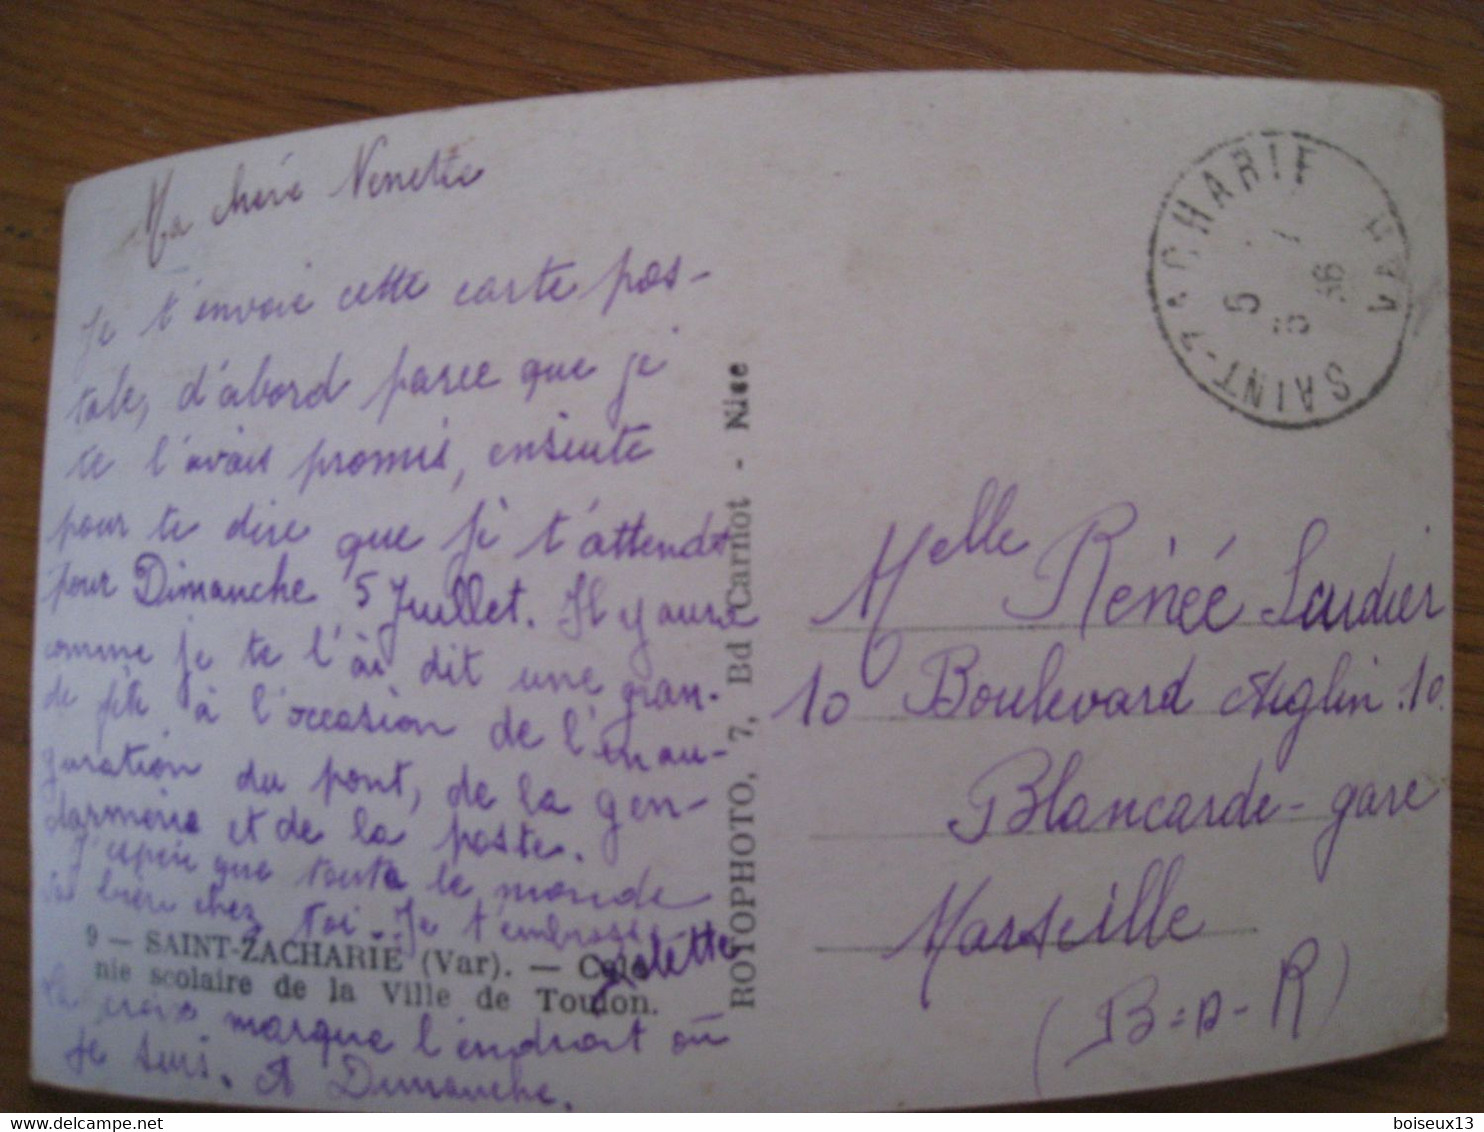 Ma chère Nenette
Je t'envoie cette carte pos-
tale, d'abord parce que je
te l'avais promis, ensuite
pour te dire que je t'attends
pour Dimanche 5 Juillet. Il y aura
comme je te l'ai dit une gran-
de fête à l'occasion de l'enau-
guration du pont, de la gen-
darmerie et de la poste.
J'espère que toute le monde
va bien chez toi. Je t'embrasse
9 — SAINT-ZACHARIE (Var). — Colo-
nie scolaire de la Ville de Toulon.
La croix marque l'endroit où
je suis. A Dimanche.
ROTOPHOTO, 7, Bd Carnot - Nice
SAINT-ZACHARIE VAR
5 7
36
Melle Rénée
10 Boulevard Aiglin. 10.
Blancarde-gare
Marseille
(B-D-R)
boiseux13